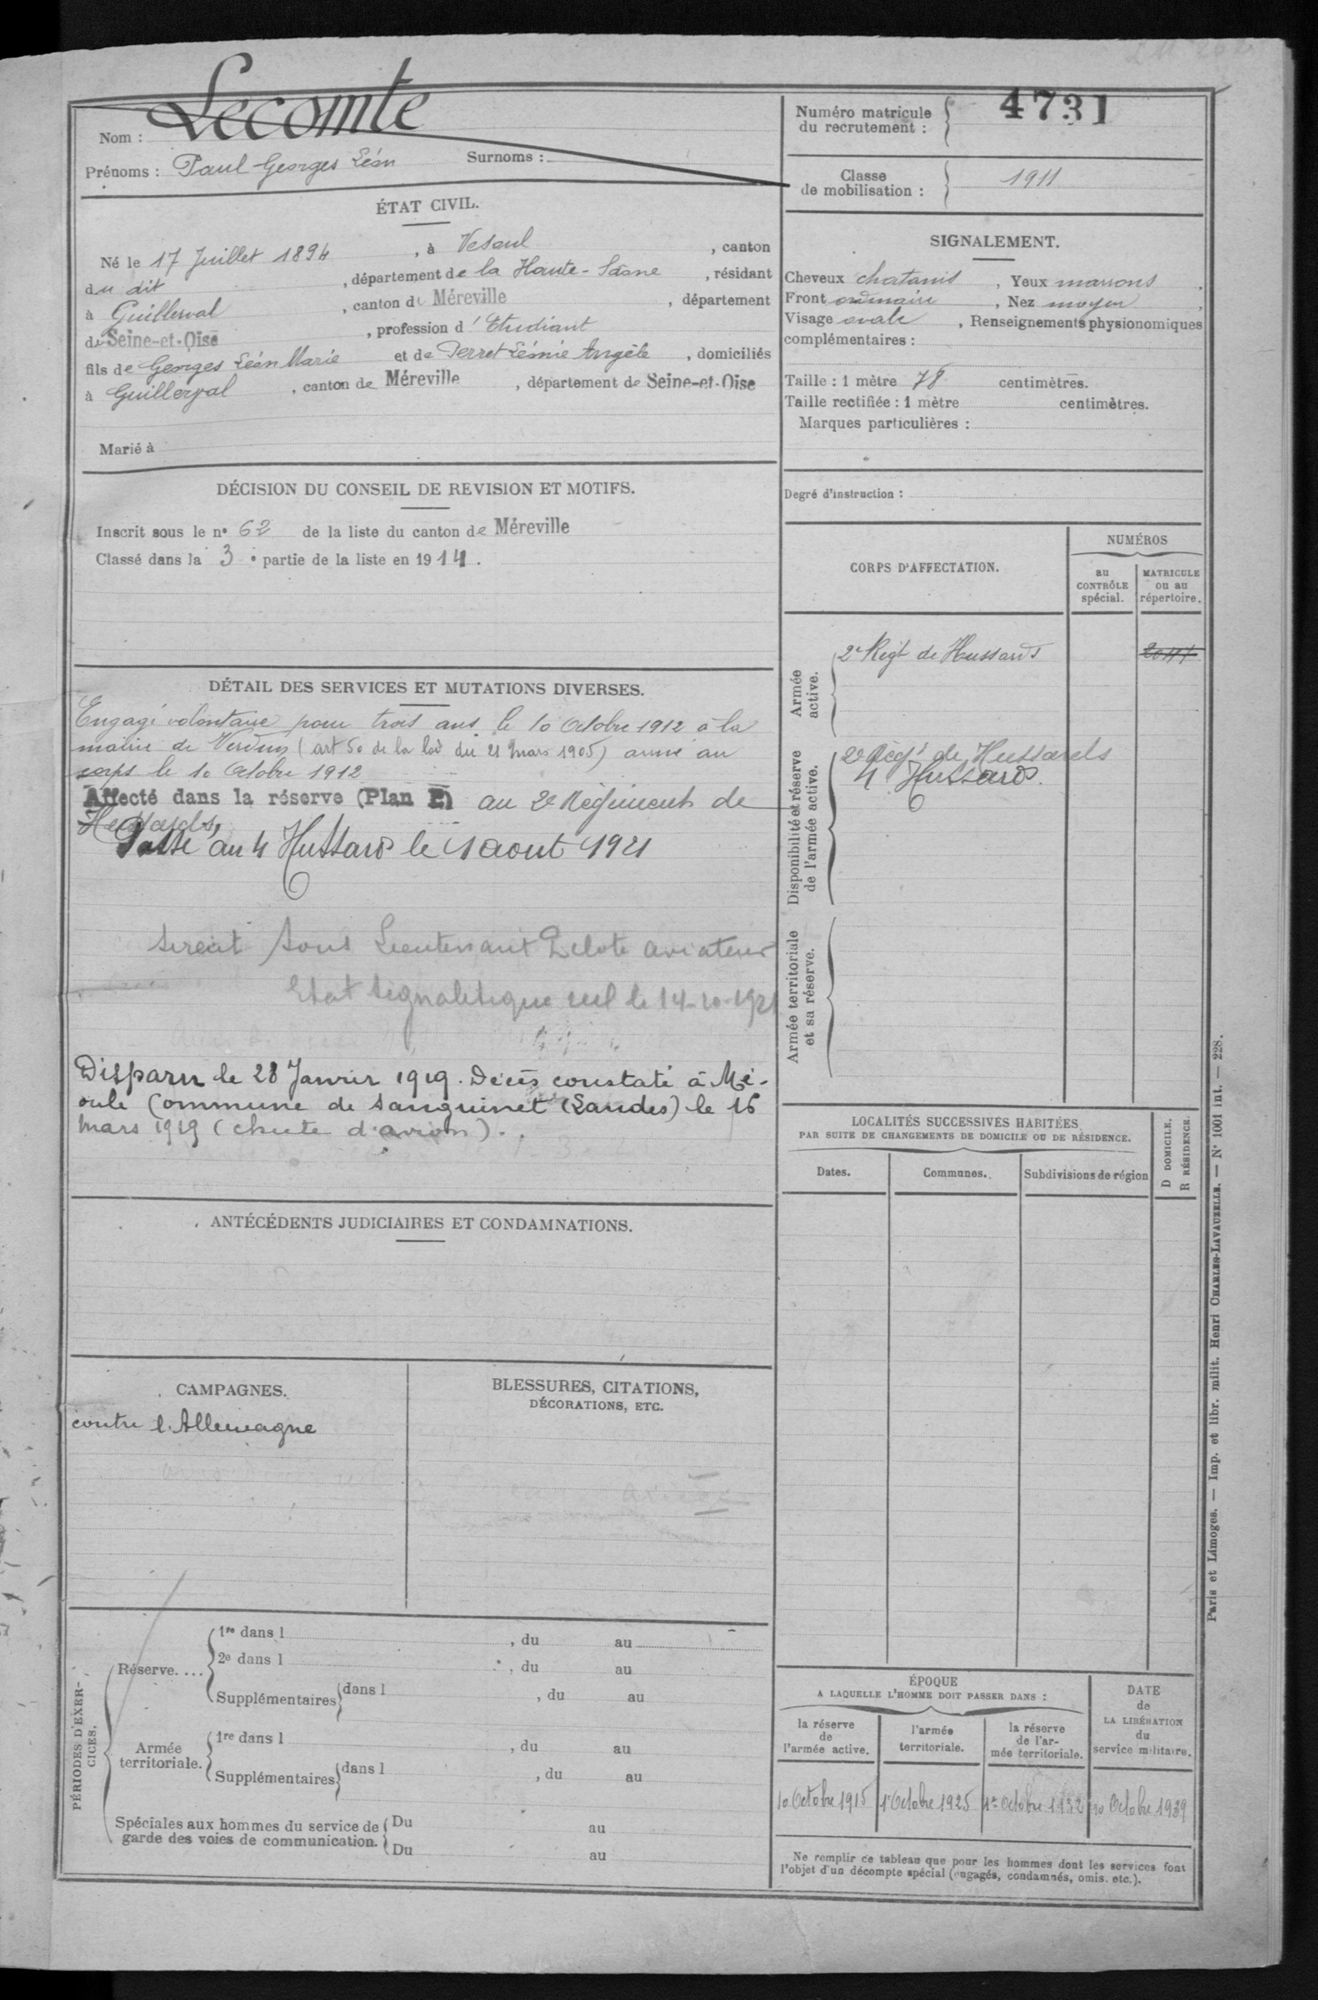 Nom : Lecomte
Prénoms : Paul Georges Léon Surnoms :
ÉTAT CIVIL.
Né le 17 Juillet 1894, à Vesoul, canton
du dit, département de la Haute-Saône, résidant
à Guillerval, canton de Méreville, département
de Seine-et-Oise, profession d'Etudiant
fils de Georges Léon Marie et de Perret Léonie Angèle, domiciliés
à Guillerval, canton de Méreville, département de Seine-et-Oise
Marié à
DÉCISION DU CONSEIL DE REVISION ET MOTIFS.
Inscrit sous le n° 62 de la liste du canton de Méreville
Classé dans la 3e partie de la liste en 1914.
DÉTAIL DES SERVICES ET MUTATIONS DIVERSES.
Engagé volontaire pour trois ans le 10 Octobre 1912 à la
mairie de Verdun (art 50 de la loi du 21 Mars 1905) arrivé au
corps le 10 Octobre 1912
Affecté dans la réserve (Plan E) au 2e Régiment de
Hussards,
Passé au 4 Hussards le 1 aout 1921
serait Sous Lieutenant Pilote aviateur
Etat signalétique le 14-10-1921
Disparu le 28 Janvier 1919. Décès constaté à Mé-
oule Commune de Sanguinet (Landes) le 16
Mars 1919 (chute d'avion).
ANTÉCÉDENTS JUDICIAIRES ET CONDAMNATIONS.
CAMPAGNES.
contre l'Allemagne
BLESSURES, CITATIONS,
DÉCORATIONS, ETC.
PÉRIODES D'EXER-
CICES.
Réserve....
1re dans l , du au
2e dans l , du au
Supplémentaires dans l , du au
Armée
territoriale.
1re dans l , du au
Supplémentaires dans l , du au
Spéciales aux hommes du service de
garde des voies de communication.
Du au
Du au
Numéro matricule
du recrutement : 4731
Classe
de mobilisation : 1911
SIGNALEMENT.
Cheveux chatains, Yeux marrons,
Front ordinaire, Nez moyen,
Visage ovale, Renseignements physionomiques
complémentaires :
Taille : 1 mètre 78 centimètres.
Taille rectifiée : 1 mètre centimètres.
Marques particulières :
Degré d'instruction :
CORPS D'AFFECTATION.
NUMÉROS
au
CONTRÔLE
spécial.
MATRICULE
ou au
répertoire.
Armée
active.
2e Régt de Hussards
Disponibilité et réserve
de l'armée active.
2e Régt de Hussards
4 Hussards.
Armée territoriale
et sa réserve.
LOCALITÉS SUCCESSIVES HABITÉES
PAR SUITE DE CHANGEMENTS DE DOMICILE OU DE RÉSIDENCE.
D DOMICILE.
R RÉSIDENCE.
Dates.
Communes.
Subdivisions de région
ÉPOQUE
A LAQUELLE L'HOMME DOIT PASSER DANS :
la réserve
de
l'armée active.
l'armée
territoriale.
la réserve
de l'ar-
mée territoriale.
DATE
de
LA LIBÉRATION
du
service militaire.
10 Octobre 1915
1er Octobre 1925
1er Octobre 1932
10 Octobre 1939
Ne remplir ce tableau que pour les hommes dont les services font
l'objet d'un décompte spécial (engagés, condamnés, omis. etc.).
Paris et Limoges. — Imp. et libr. milit. Henri CHARLES-LAVAUZELLE. — N° 1001 int. — 228.